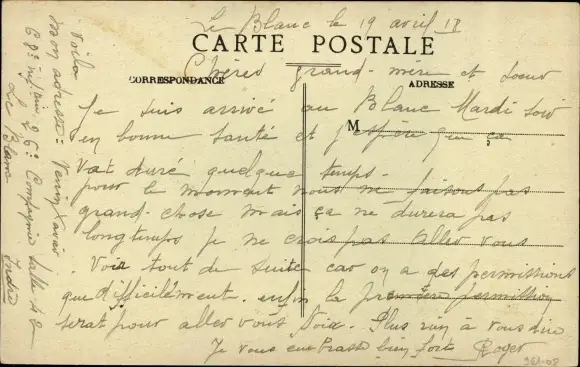 Le Blanc le 19 avril 18
CARTE POSTALE
CORRESPONDANCE
ADRESSE
Chères grand-mère et soeur
Je suis arrivé au Blanc Mardi soir
M
en bonne santé et j'espère que ça
vat duré quelque temps.
pour le moment nous ne faisons pas
grand-chose mais ça ne durera pas
longtemps je ne crois pas aller vous
Voir tout de suite car on a des permissions
que difficilement. enfin la première permission
serat pour aller vous voir. Plus rien à vous dire
Je vous embrasse bien fort Roger
Voila
mon adresse:
68e 26e Compagnie Salle 42
Le Blanc
Indre